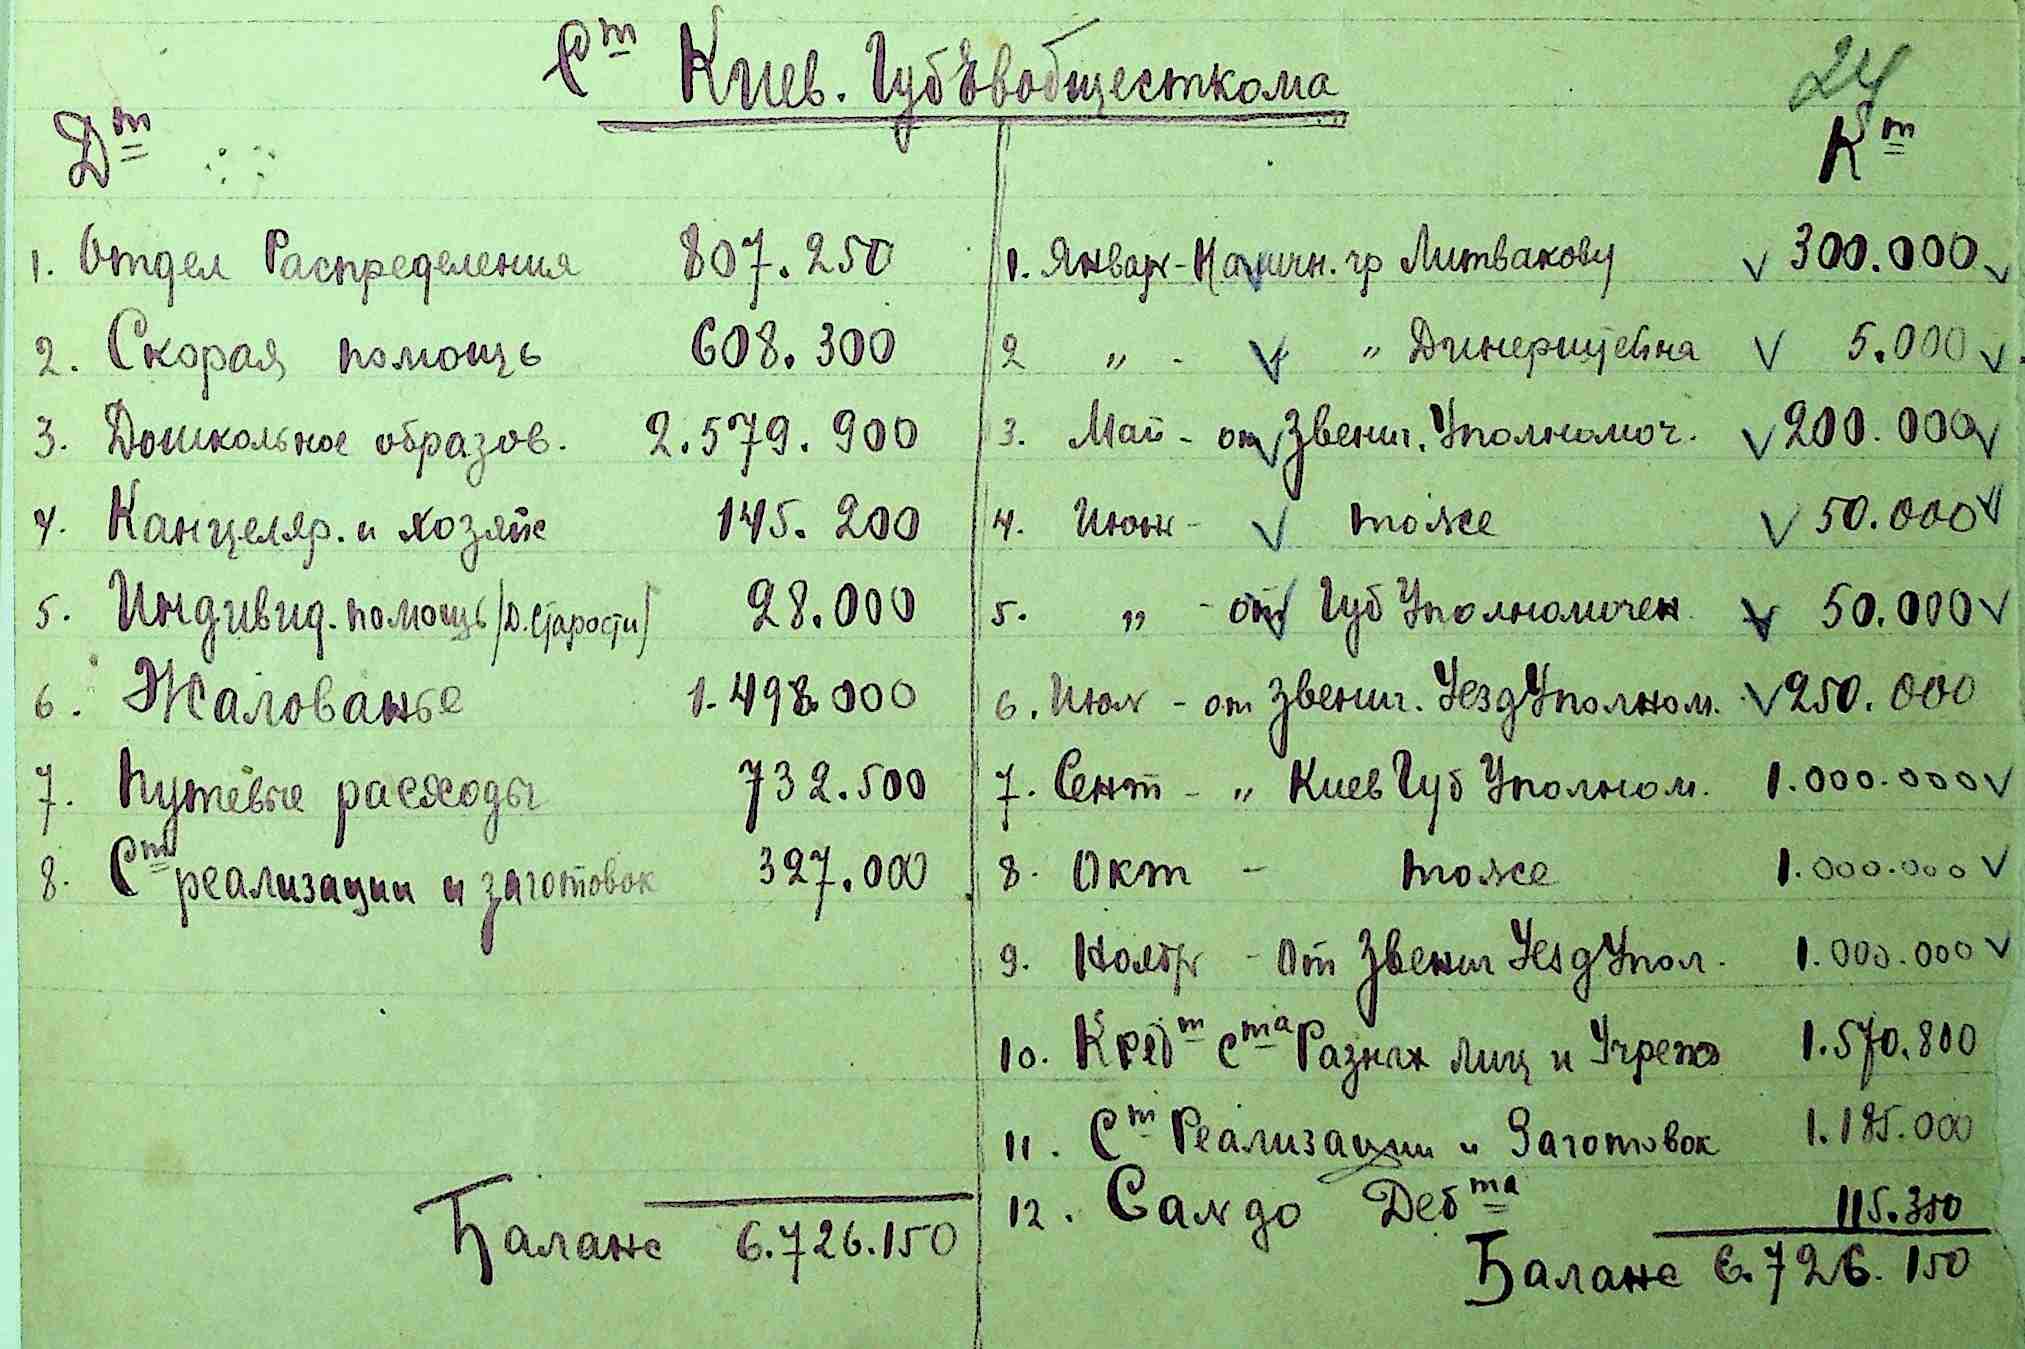 Ст Киев. ГубЕвобщесткома
24
Дт
1. Отдел Распределения 807.250
2. Скорая помощь 608.300
3. Дошкольное образов. 2.579.900
4. Канцеляр. и хозяйс 145.200
5. Индивид. помощь /Д. Старости/ 28.000
6. Жалованье 1.498.000
7. Путевые расходы 732.500
8. Ст реализации и заготовок 327.000
Баланс 6.726.150
Кт
1. Январ - Наличн. гр Литвакову 300.000
2 „ - „ Динерштейна 5.000
3. Май - от Звениг. Уполномоч. 200.000
4. Июнь - тоже 50.000
5. „ - от Губ Уполномочен 50.000
6. Июль - от Звениг. УездУполном. 250.000
7. Сент - „ Киев Губ Уполном. 1.000.000
8. Окт - тоже 1.000.000
9. Ноябр - От Звениг УездУпол. 1.000.000
10. Кредт Ста Разных лиц и Учреж 1.570.800
11. Ст Реализации и Заготовок 1.185.000
12. Сальдо Дебта 115.350
Баланс 6.726.150